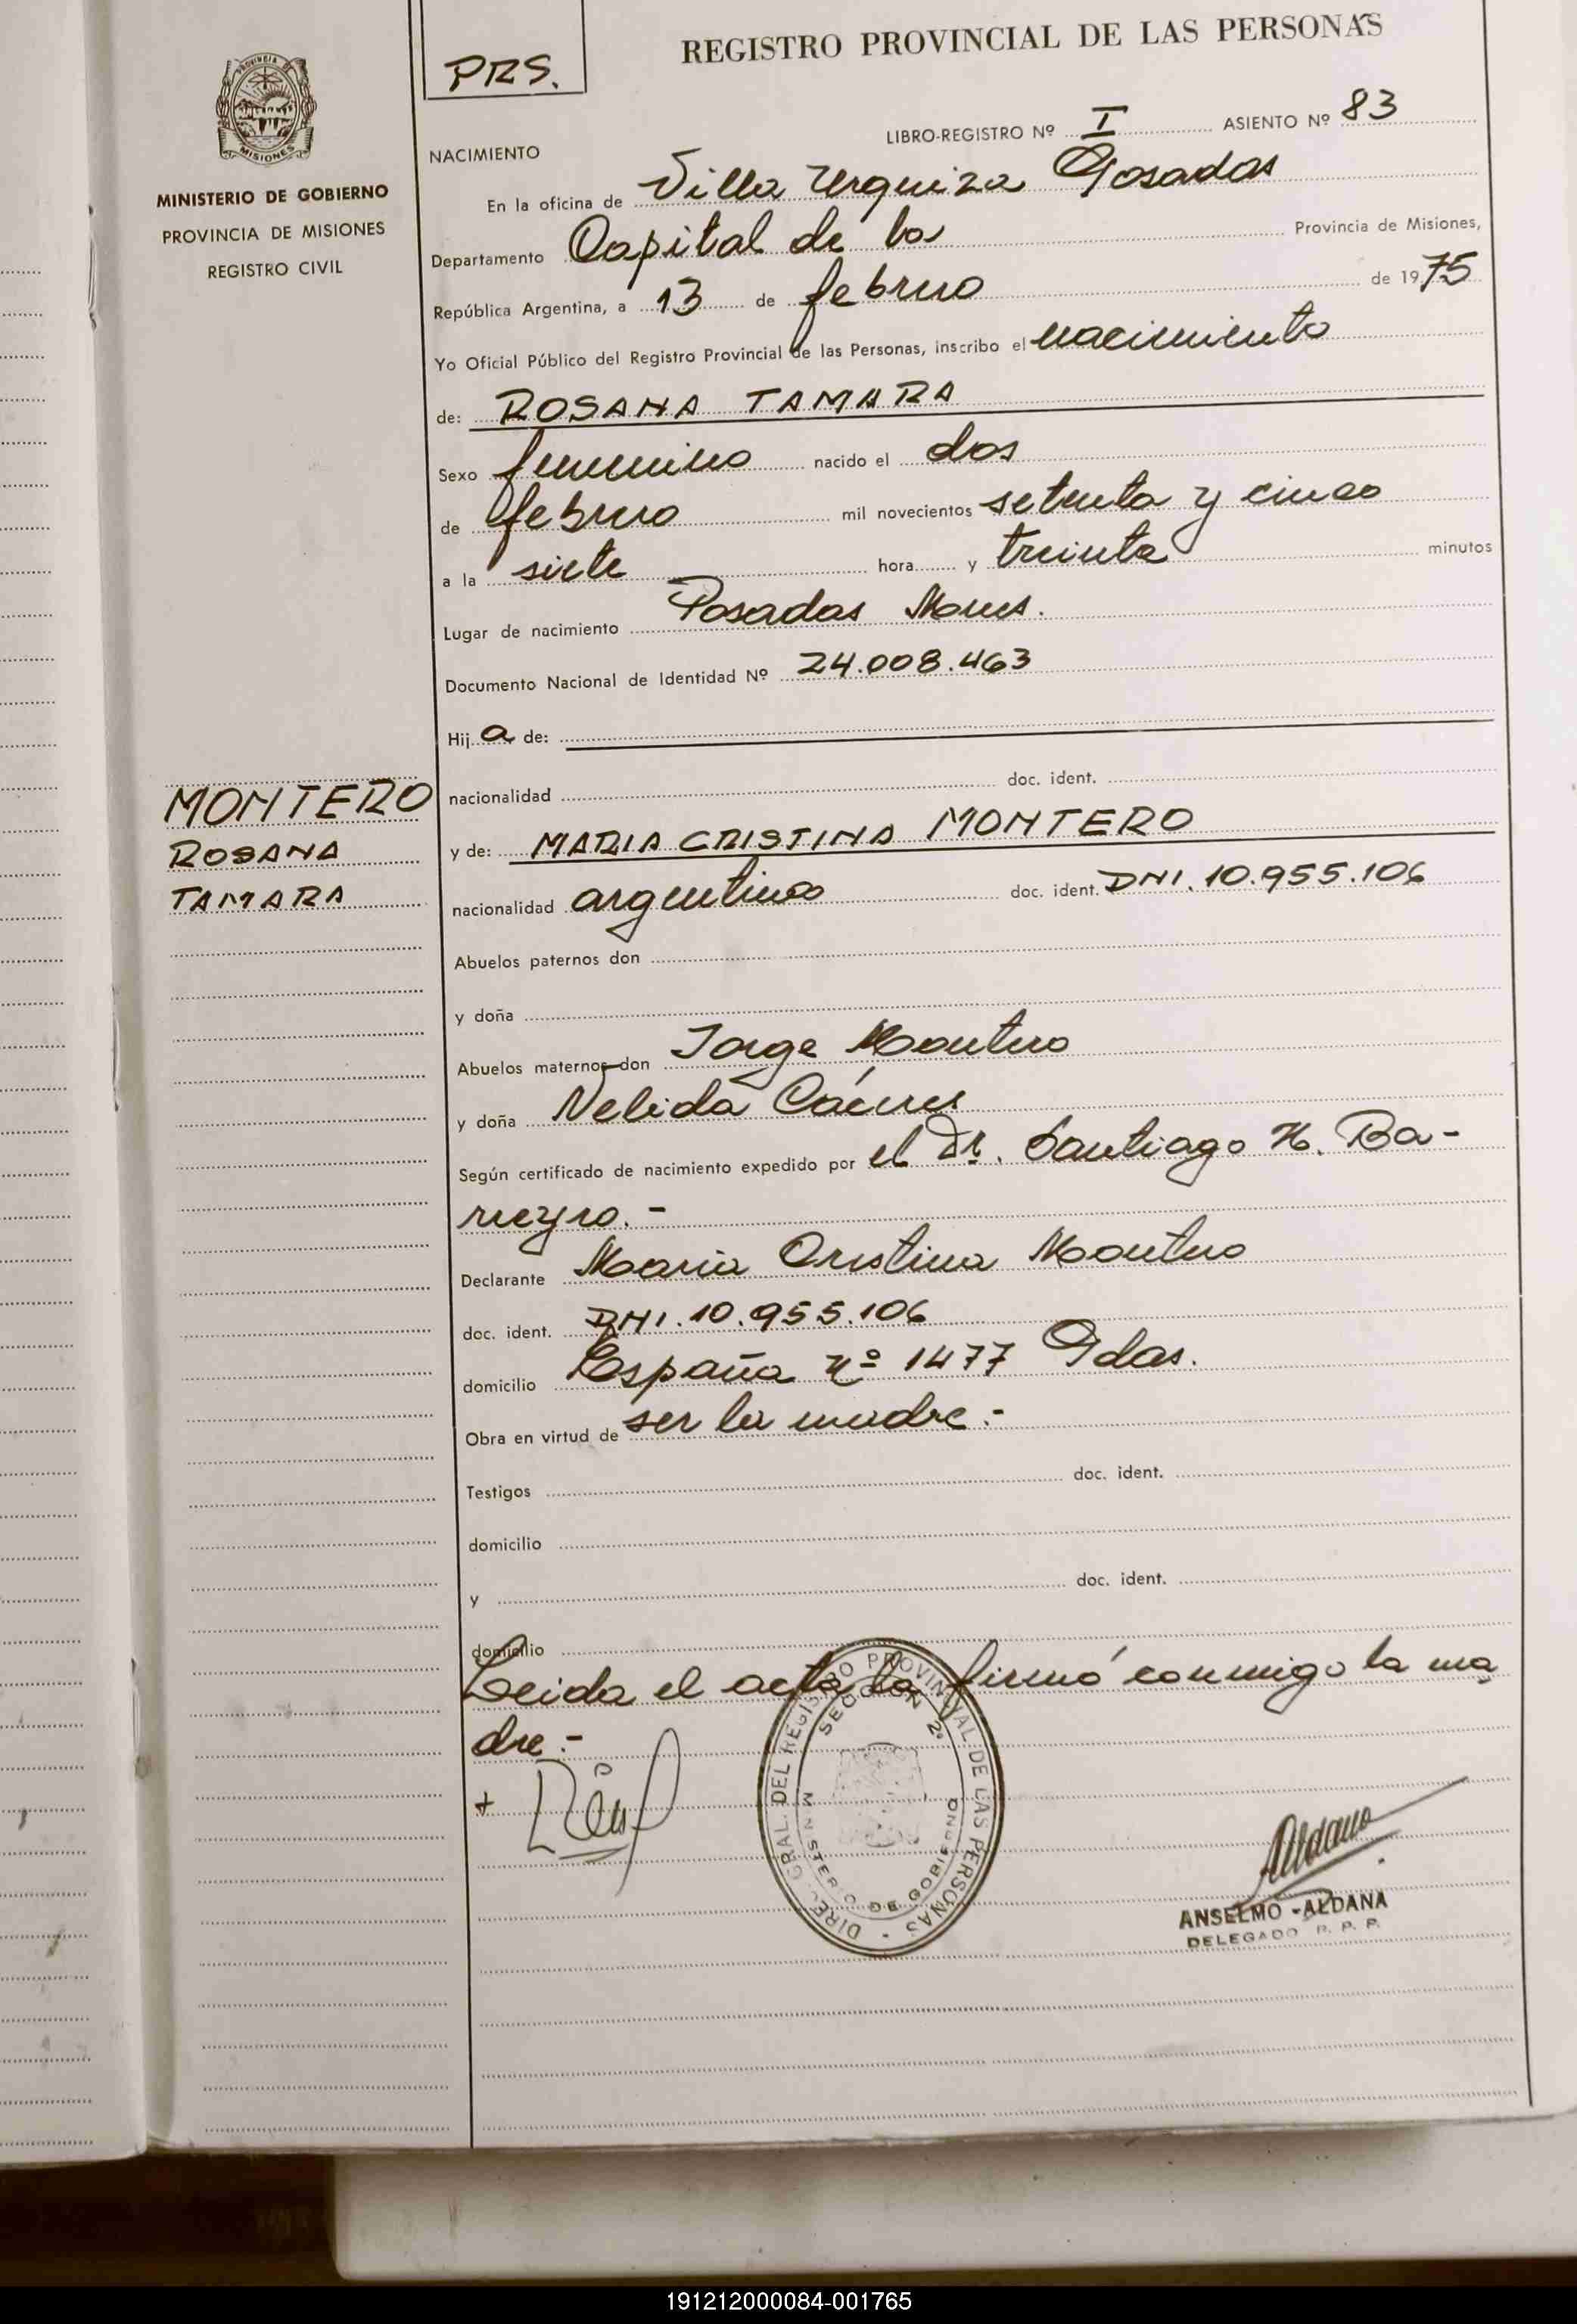 PRS.
REGISTRO PROVINCIAL DE LAS PERSONAS
PROVINCIA DE
MISIONES
MINISTERIO DE GOBIERNO
PROVINCIA DE MISIONES
REGISTRO CIVIL
LIBRO-REGISTRO Nº I ASIENTO Nº 83
NACIMIENTO
En la oficina de Villa Urquiza Posadas
Departamento Capital de la Provincia de Misiones,
República Argentina, a 13 de febrero de 1975
Yo Oficial Público del Registro Provincial de las Personas, inscribo el nacimiento
de: ROSANA TAMARA
Sexo femenino nacido el dos
de febrero mil novecientos setenta y cinco
a la siete hora y treinta minutos
Lugar de nacimiento Posadas Mnes.
Documento Nacional de Identidad Nº 24.008.463
Hij a de:
nacionalidad doc. ident.
MONTERO
ROSANA
TAMARA
y de: MARIA CRISTINA MONTERO
nacionalidad argentina doc. ident. DNI. 10.955.106
Abuelos paternos don
y doña
Abuelos maternos don Jorge Montero
y doña Nelida Cáceres
Según certificado de nacimiento expedido por el Dr. Santiago H. Ba-
rreyro.-
Declarante Maria Cristina Montero
doc. ident. DNI. 10.955.106
domicilio España nº 1477 Pdas.
Obra en virtud de ser la madre.-
Testigos doc. ident.
domicilio
y doc. ident.
domicilio
Leida el acta la firmó conmigo la ma
dre.-
DIREC. GRAL. DEL REGISTRO PROVINCIAL DE LAS PERSONAS -
SECCION 2º
MINISTERIO DE GOBIERNO
Aldana
ANSELMO - ALDANA
DELEGADO R. P. P.
191212000084-001765